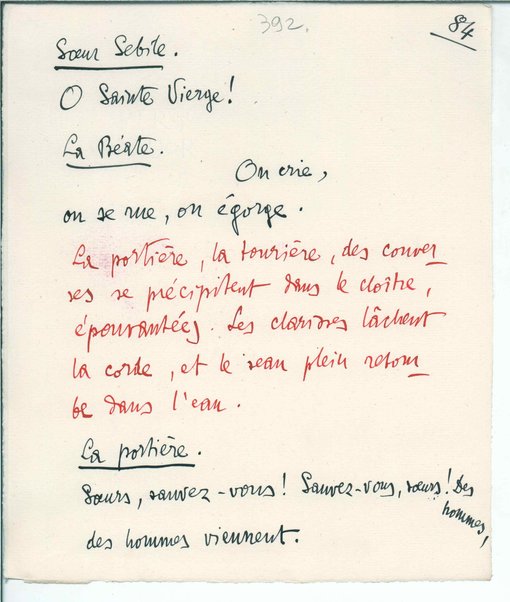 392.
84
Sœur Sebile.
O Sainte Vierge!
La Béate.
On crie,
on se rue, on égorge.
La portière, la tourière, des conver-
ses se précipitent dans le cloître,
épouvantées. Les clarisses lâchent
la corde, et le seau plein retom-
be dans l'eau.
La portière.
Sœurs, sauvez-vous! Sauvez-vous, sœurs! Des
hommes,
des hommes viennent.